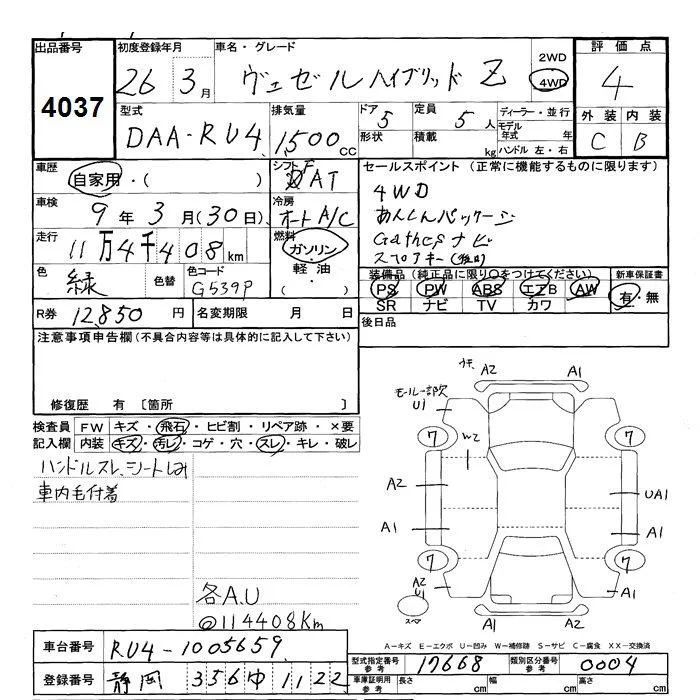 出品番号 初度登録年月 車名・グレード 2WD 評価点
4037 26 3月 ヴェゼルハイブリッド Z 4WD 4
型式 排気量 ドア 5 定員 5人 ディーラー・並行 外装 内装
DAA-RU4 1500cc 形状 積載 kg モデル年式 年 C B
ハンドル 左・右
車歴 シフト セールスポイント (正常に機能するものに限ります)
自家用・( ) FAT 4WD
車検 冷房 あんしんパッケージ
9年 3月(30日) オートA/C Gathersナビ
走行 燃料 スマアキー
11万4千408km ガソリン・
軽油・
( )
色 色替 色コード 装備品 (純正品に限り○をつけてください) 新車保証書
緑 G539P PS PW ABS エアB AW 有・無
SR ナビ TV カワ
R券 12,850円 名変期限 月 日 後日品
注意事項申告欄 (不具合内容等は具体的に記入して下さい)
修復歴 有 〔箇所 〕
検査員 FW キズ・飛石・ヒビ割・リペア跡・×要
記入欄 内装 キズ・汚レ・コゲ・穴・スレ・キレ・破レ
ハンドルスレ、シートしみ
車内毛付着
各A.U
@114408Km
A2 A1
モール一部欠
U1
7 7
W2
A2 UA1
A1 A1
7 7
A2 U1 A1
スペア A1 A2
A-キズ E-エクボ U-凹み W-補修跡 S-サビ C-腐食 XX-交換済
車台番号 RU4-1005659
登録番号 静岡 356ゆ1122
型式指定番号 参考 17668 類別区分番号 参考 0004
車庫証明用 参考 長さ cm 幅 cm 高さ cm